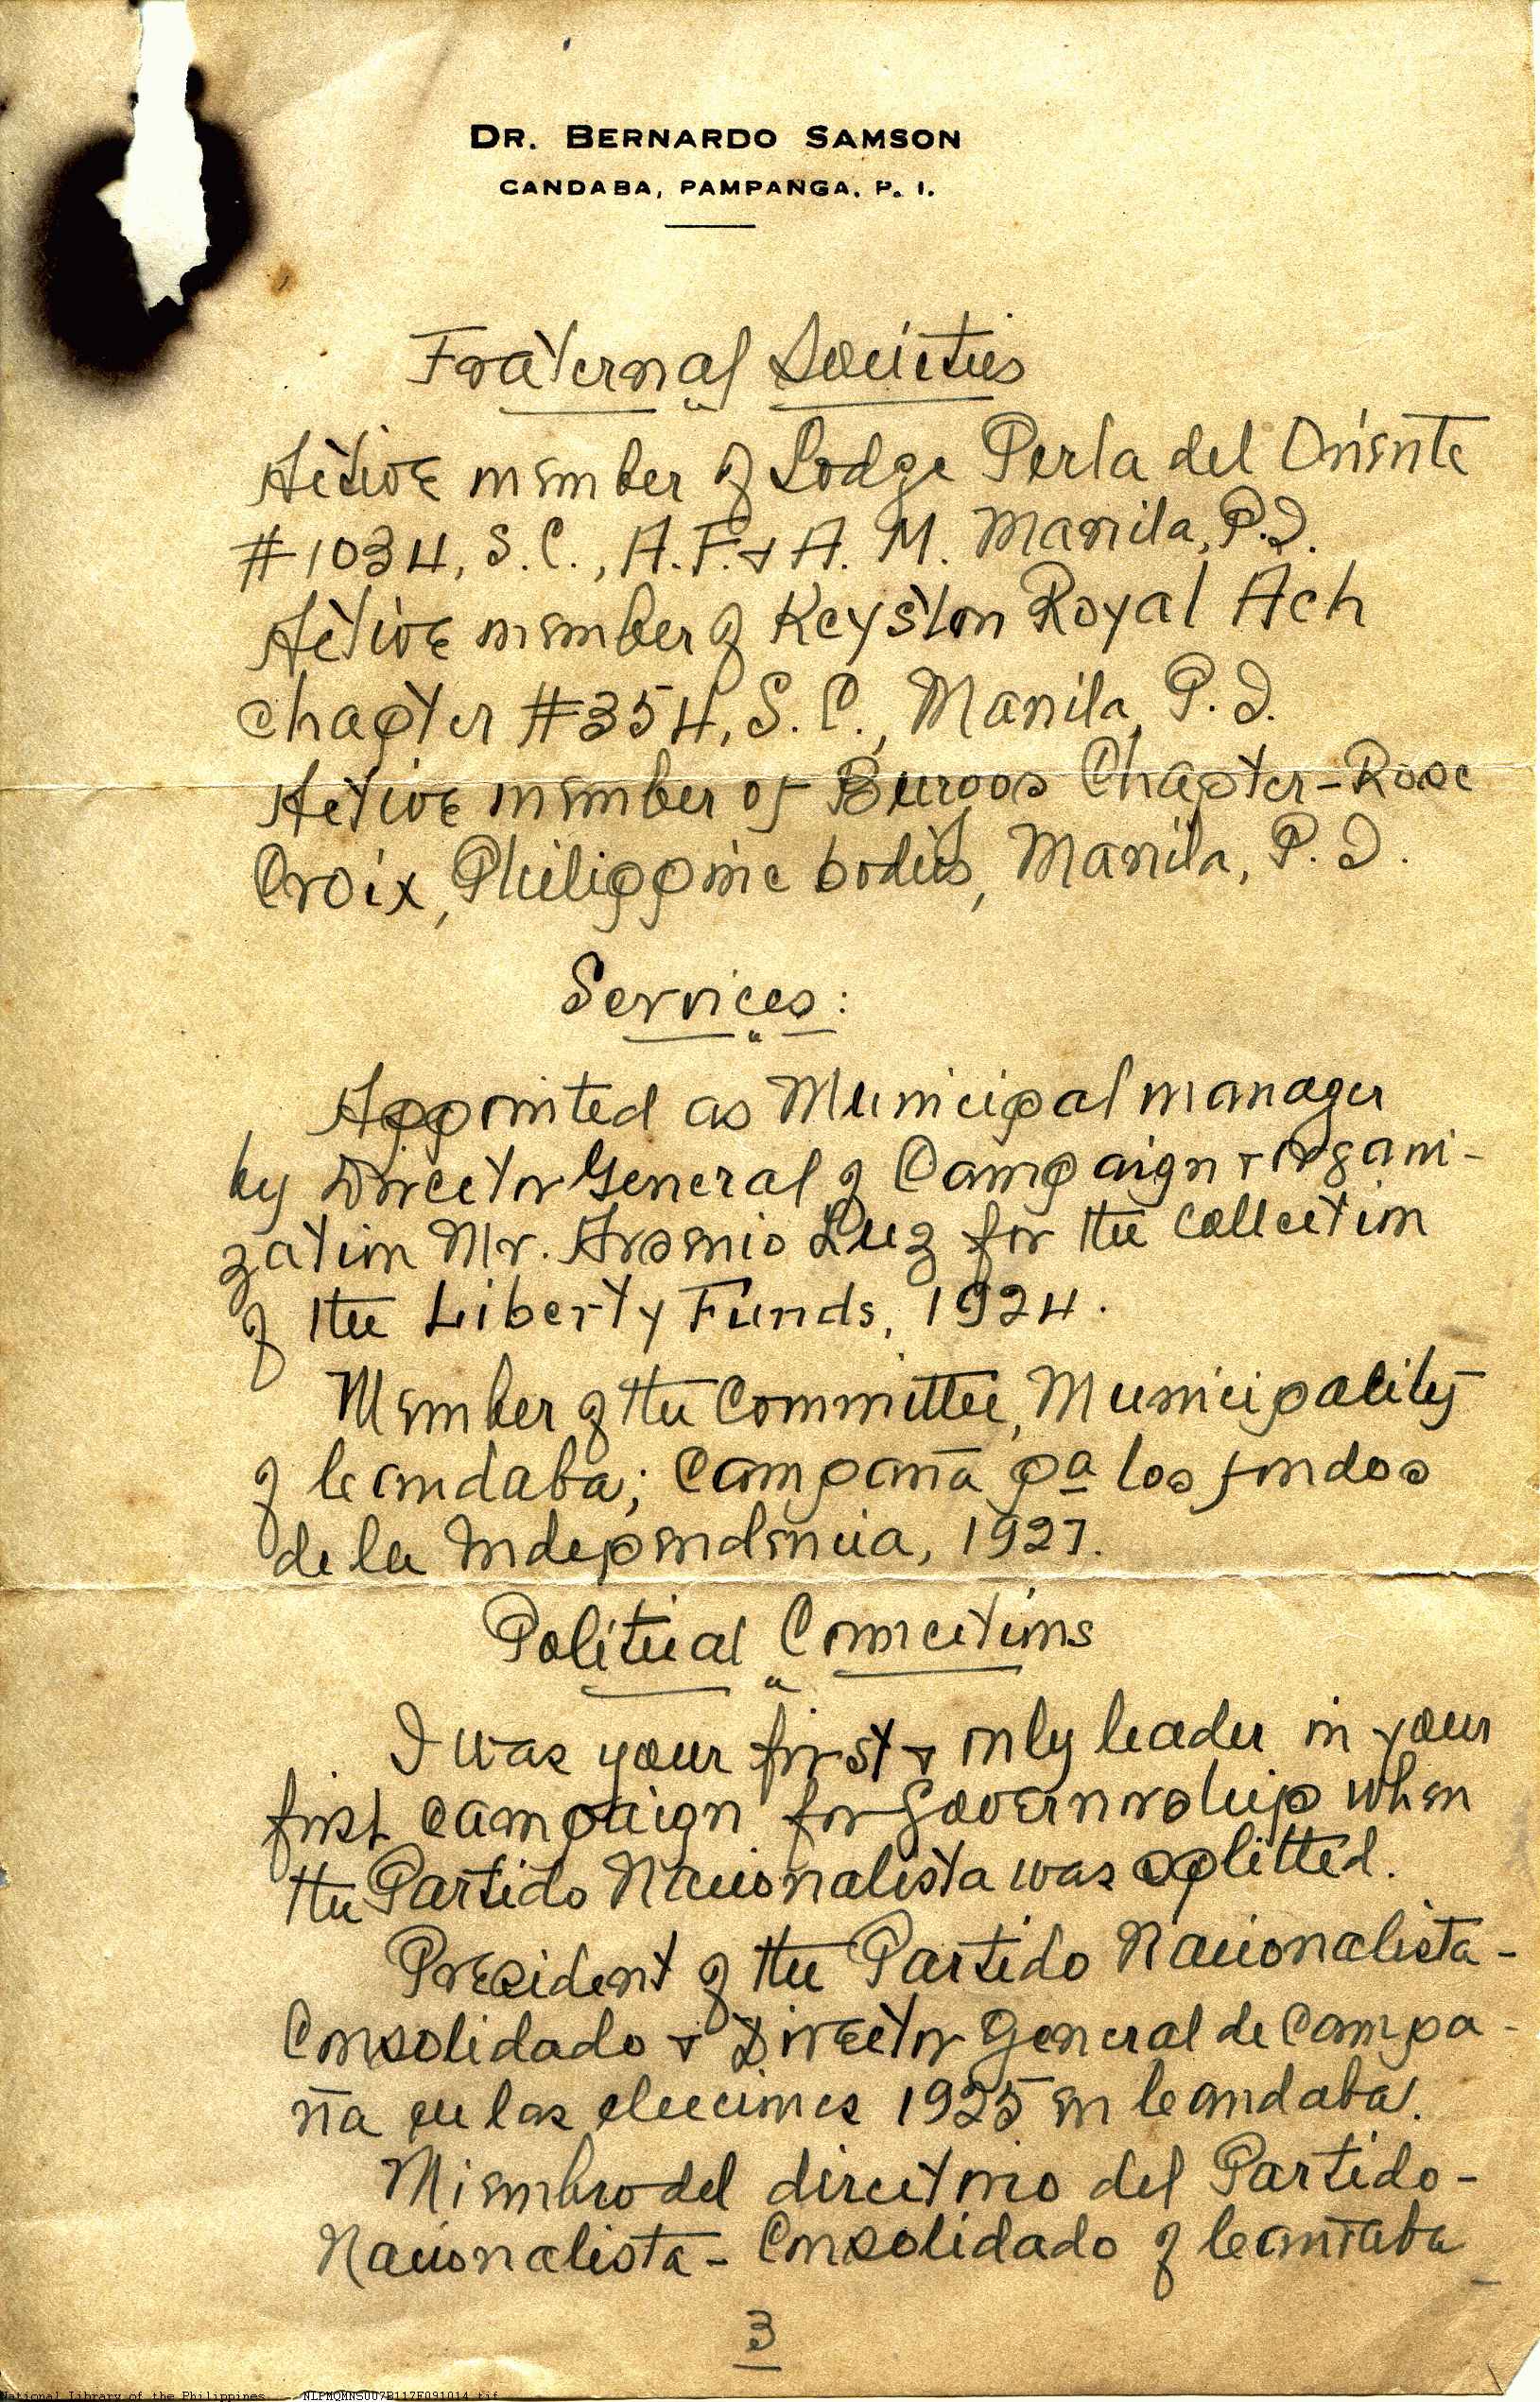 DR. BERNARDO SAMSON
CANDABA, PAMPANGA, P. I.
Fraternal Societies
Active member of Lodge Perla del Oriente
#1034, S. C., A. F. & A. M. Manila, P. I.
Active member of Keyston Royal Ach
chapter #354, S. C., Manila, P. I.
Active member of Burgos Chapter-Rose
Croix, Philippine bodies, Manila, P. I.
Services:
Appointed as Municipal manager
by Director General of Campaign & organi-
zation Mr. Arsenio Luz for the collection
of the Liberty Funds, 1924.
Member of the Committee, Municipality
of Candaba; Campaña pa los fondos
de la Independencia, 1927.
Political Connections
I was your first & only leader in your
first campaign for Governorship when
the Partido Nacionalista was splitted.
President of the Partido Nacionalista-
Consolidado & Director General de Campa-
ña en las elecciones 1925 en Candaba.
Miembro del directorio del Partido-
Nacionalista-Consolidado of Candaba
3
National Library of the Philippines NLPMQMNS007B117F091014.tif